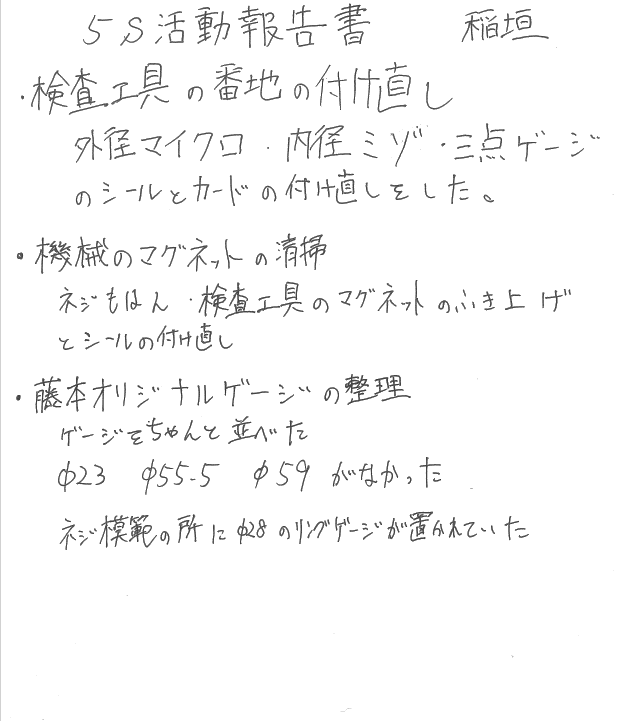 5S活動報告書 稲垣
・検査工具の番地の付け直し
外径マイクロ・内径ミゾ・三点ゲージ
のシールとカードの付け直しをした。
・機械のマグネットの清掃
ネジもはん・検査工具のマグネットのふき上げ
とシールの付け直し
・藤本オリジナルゲージの整理
ゲージをちゃんと並べた
φ23 φ55.5 φ59 がなかった
ネジ模範の所にφ28のリングゲージが置かれていた